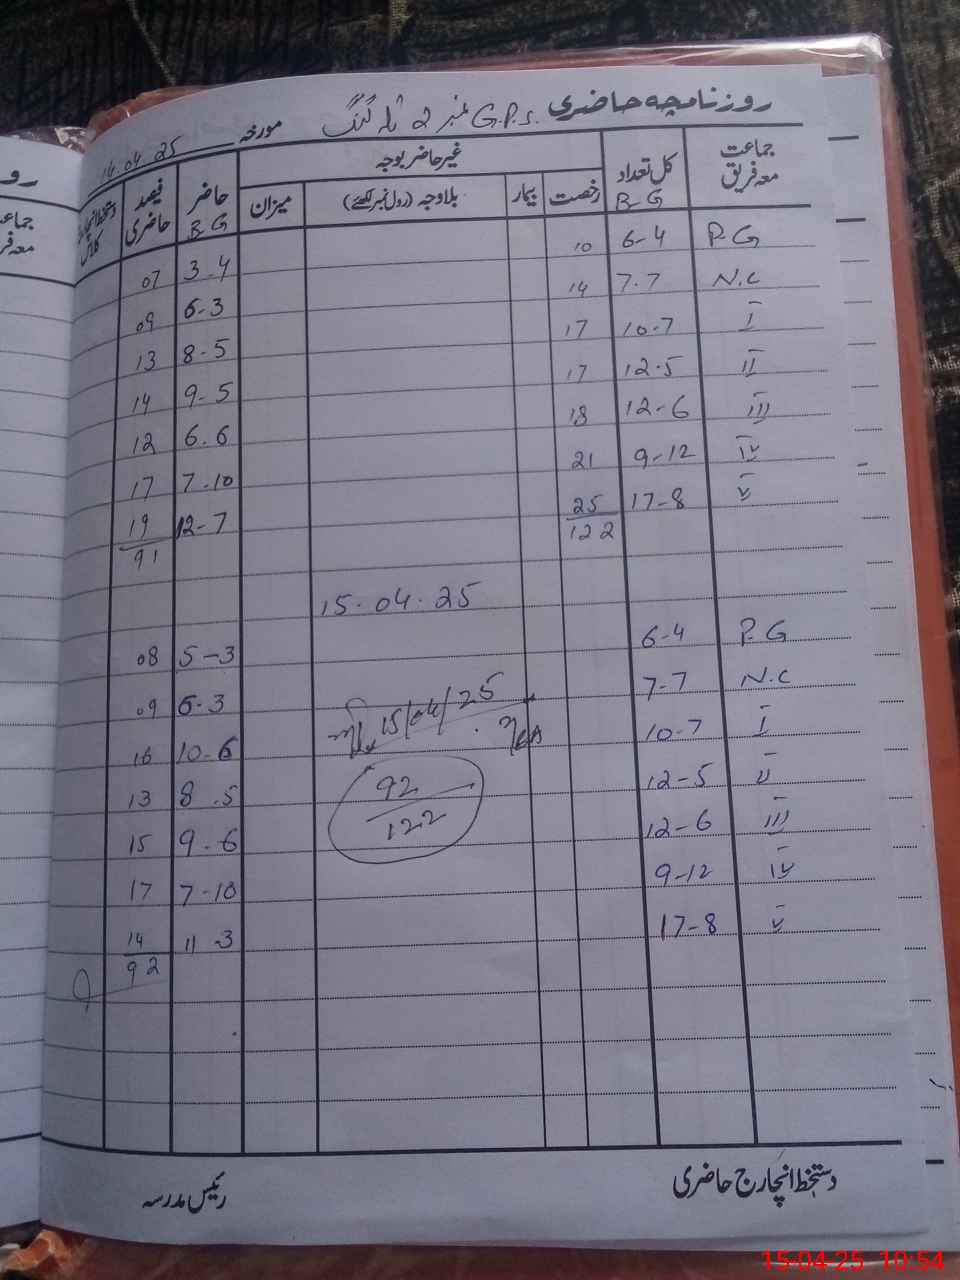 روزنامچہ حاضری G.P.S. نمبر 2 تلہ گنگ مورخہ 14.04.25
جماعت معہ فریق کل تعداد B G غیر حاضر بوجہ حاضر B G فیصد حاضری دستخط انچارج کلاس
رخصت بیمار بلاوجہ (رول نمبر لکھئے) میزان
P.G 6-4 10 3-4 07
N.C 7.7 14 6-3 09
I 10-7 17 8-5 13
II 12.5 17 9-5 14
III 12-6 18 6.6 12
IV 9-12 21 7-10 17
V 17-8 25 12-7 19
122 91
15.04.25
P.G 6-4 5-3 08
N.C 7-7 6-3 09
I 10-7 15/04/25 10-6 16
II 12-5 92 8.5 13
III 12-6 122 9-6 15
IV 9-12 7-10 17
V 17-8 11-3 14
92
دستخط انچارج حاضری رئیس مدرسہ
جماعت
معہ
15-04-25 10:54